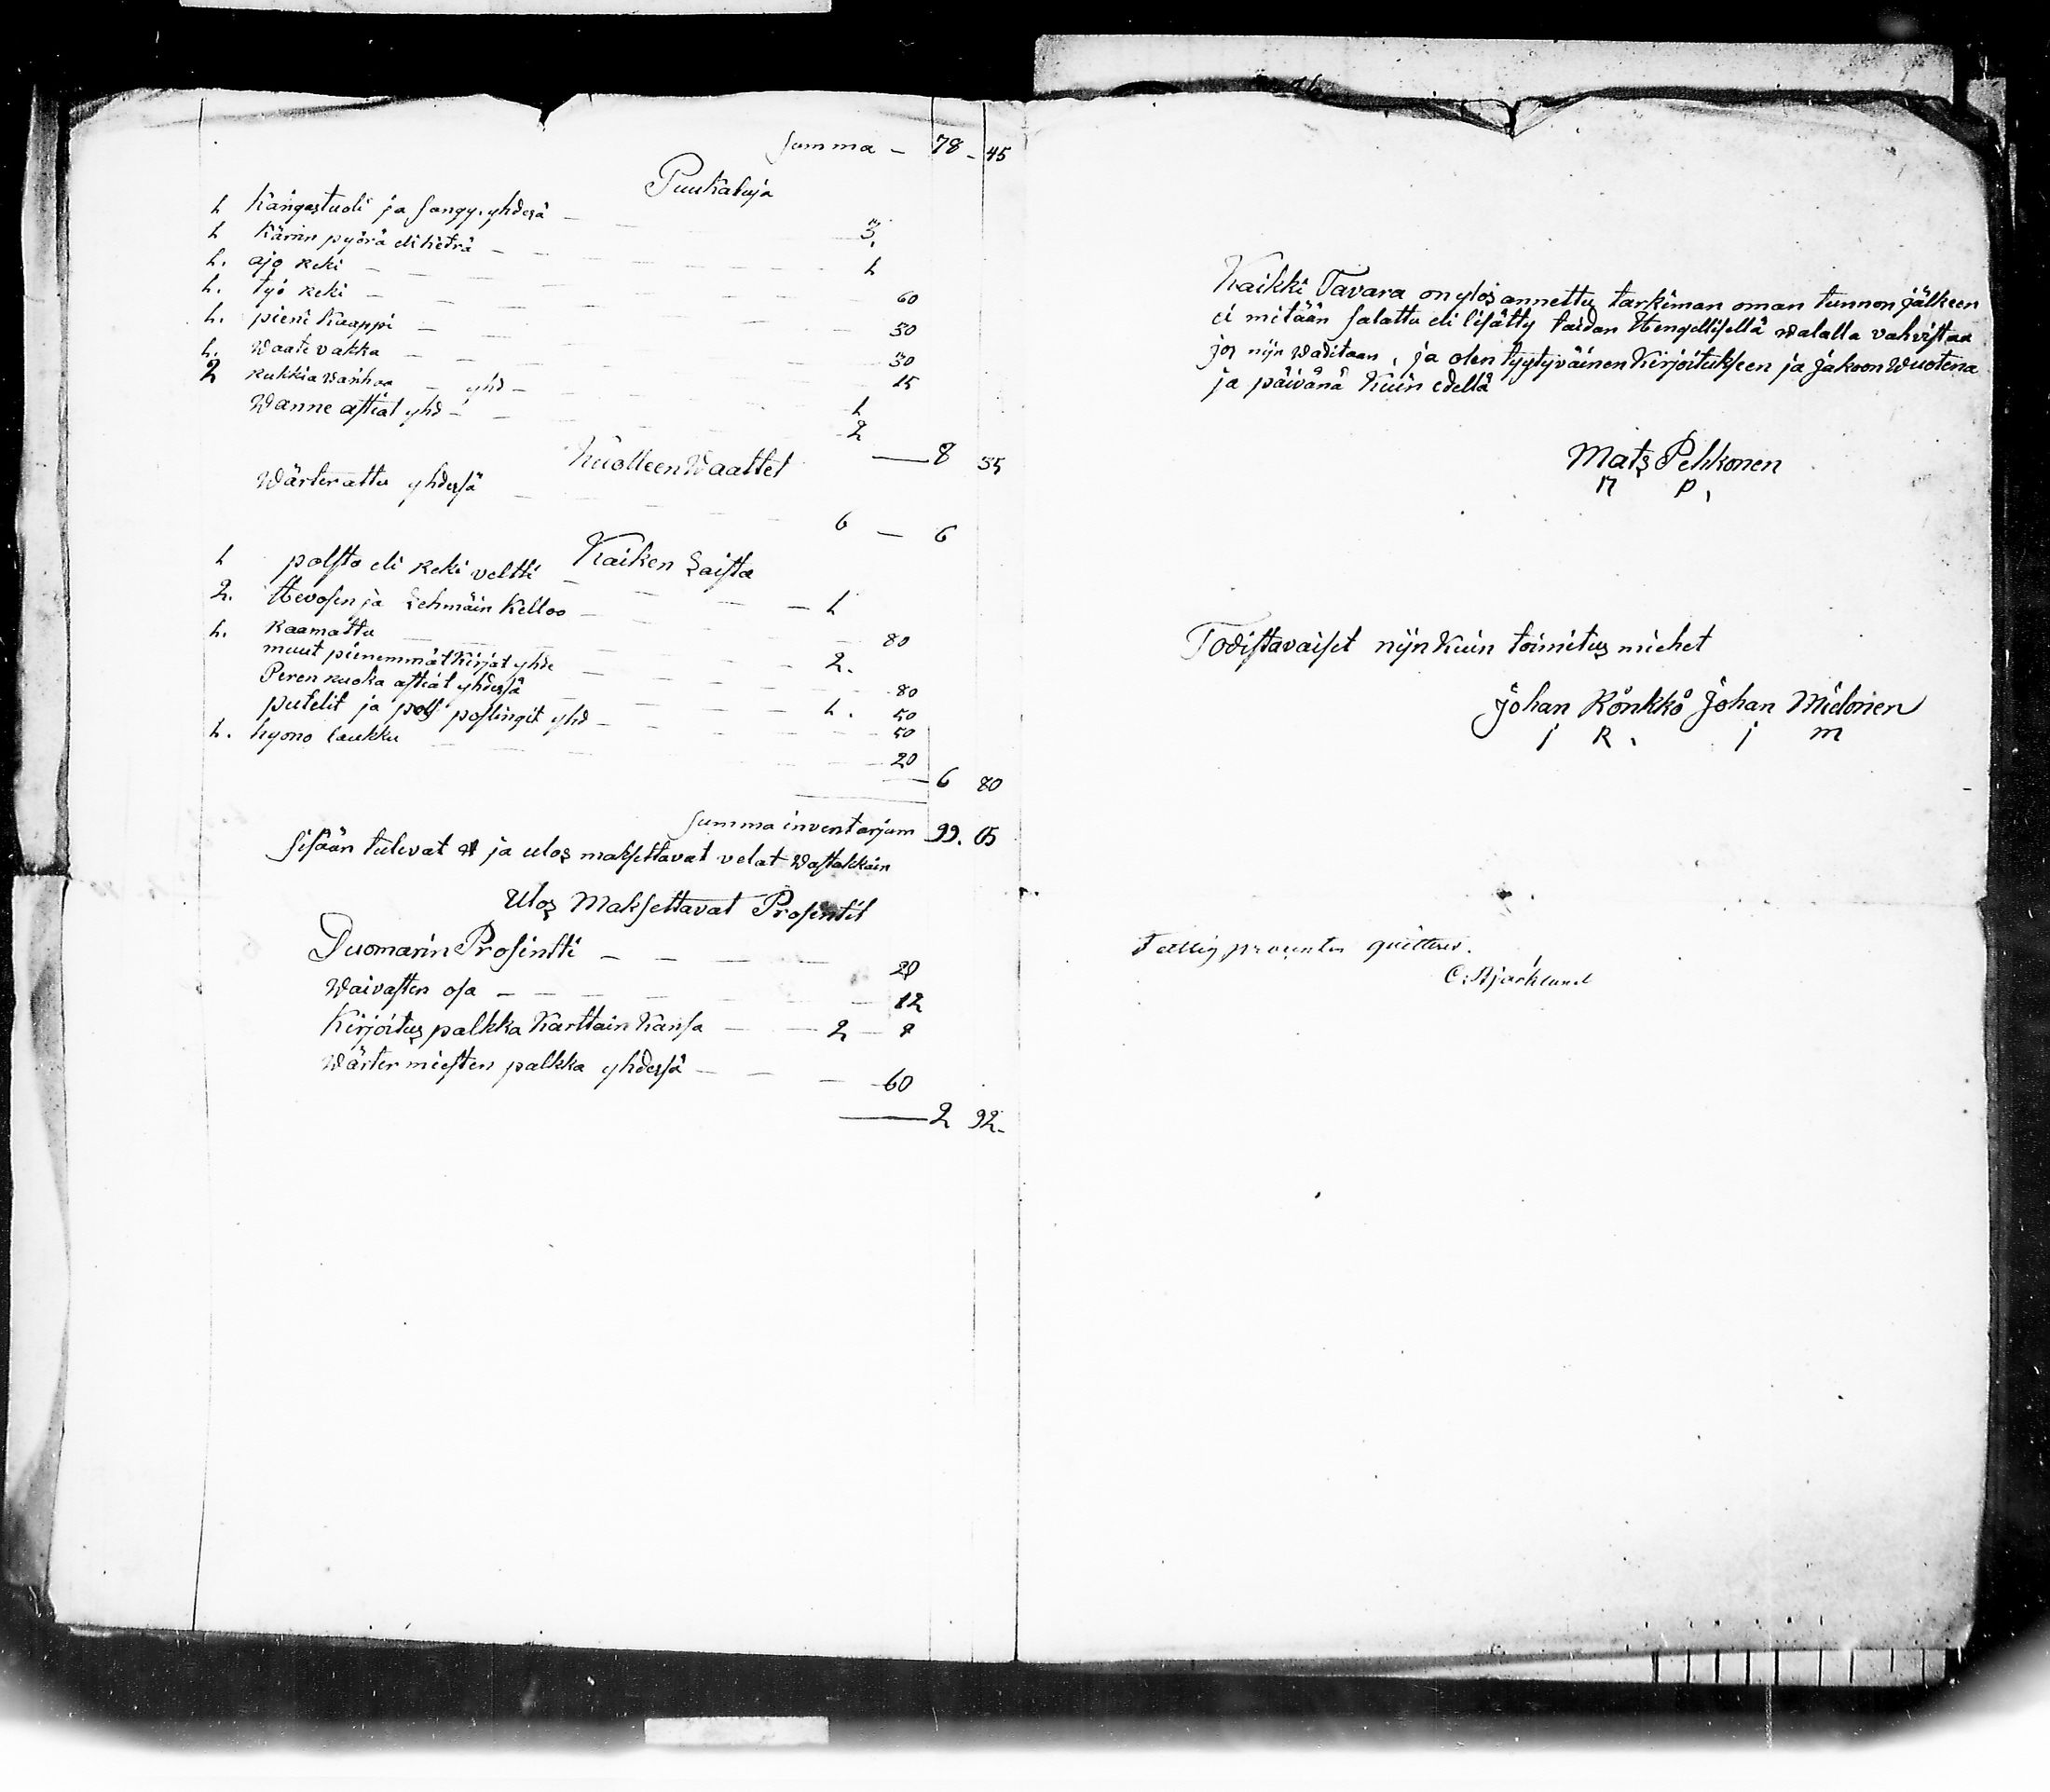 Summa — 78 - 45
Puukaluja
1 Kangastuoli ja Sängy. yhdesä — 3.
1 Kärrin pyörä eli hieträ — 1
1. ajo reki — 60
1. työ reki — 50
1. pieni Kaappi — 30
1. Waate vakka — 15
2 rukkia Wanhaa — yhd — 1
Wanne astiat yhd — 2
— 8 55
Kuolleen Waattet
Wärterattu yhdessä — 6 — 6
Kaiken Laista
1 polsto eli reki veltti — 1
2. Hevosen ja Lehmäin Kelloo — 80
1. Raamattu — 2.
muut pienemmät Kirjat yhde — 80
Peren ruoka astiat yhdessä — 1. 50
putelit ja pols poslingit yhd — 50
1. hyono laukku — 20
— 6 80
Summa inventarjum 99. 05
Sisään tulevat ja ulos maksettavat velat Wastakkain
Ulos Maksettavat Prosintit
Duomarin Prosintti — 20
Waivasten osa — 12
Kirjoitus palkka Karttain Kansa — 2 —
Wärter miesten palkka yhdessä — 60
— 2 92-
Kaikki Tavara on ylös annettu tarkiman oman tunnon jälkeen
ei mitään salattu eli lisätty taidan Hengellisellä walalla vahvistaa
jos nijn waditaan, ja olen tyytyväinen Kirjoitukseen ja jakoon Wuotena
ja päivänä Kuin edellä
Mats Pehkonen
M P,
Todistavaiset nijn Kuin toimitus miehet
Johan Rönkkö Johan Mielonen
J R. J M
Fattig procenten quitteras.
C: Björklund